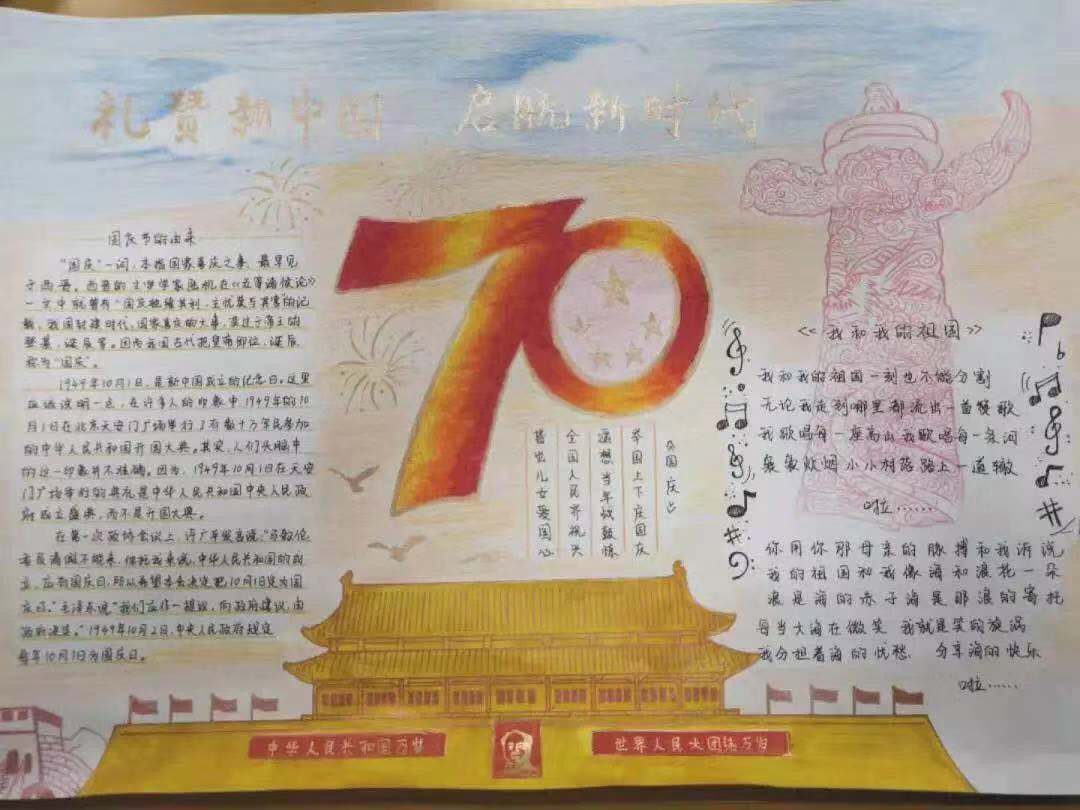 礼赞新中国 启航新时代
国庆节的由来
“国庆”一词，本指国家喜庆之事、最早见
于西晋。西晋的文学家陆机在《五等诸侯论》
一文中就曾有“国庆独飨其利，主忧莫与其害”的记
载，我国封建时代，国家喜庆的大事，莫过于帝王的
登基、诞辰等。因而我国古代把皇帝即位、诞辰
称为“国庆”。
1949年10月1日，是新中国成立的纪念日。这里
应该说明一点，在许多人的印象中，1949年的10
月1日在北京天安门广场举行了有数十万军民参加
的中华人民共和国开国大典。其实，人们头脑中
的这一印象并不准确。因为，1949年10月1日在天安
门广场举行的典礼是中华人民共和国中央人民政
府成立盛典，而不是开国大典。
在第一次政协会议上，许广平发言说：“马叙伦
委员请假不能来，他托我来说，中华人民共和国的成
立，应有国庆日，所以希望本会决定把10月1日定为国
庆日。”毛泽东说“我们应作一提议，向政府建议，由
政府决定。”1949年10月2日，中央人民政府规定
每年10月1日为国庆日。
70
《国庆》
举国上下庆国庆
遥想当年战鼓惊
全国人民齐祝兴
皆出儿女爱国心
《我和我的祖国》
我和我的祖国一刻也不能分割
无论我走到哪里都流出一首赞歌
我歌唱每一座高山我歌唱每一条河
袅袅炊烟 小小村落 路上一道辙
啦……
你用你那母亲的脉搏和我诉说
我的祖国和我像海和浪花一朵
浪是海的赤子海是那浪的寄托
每当大海在微笑 我就是笑的旋涡
我分担着海的忧愁 分享海的快乐
啦……
中华人民共和国万岁
世界人民大团结万岁